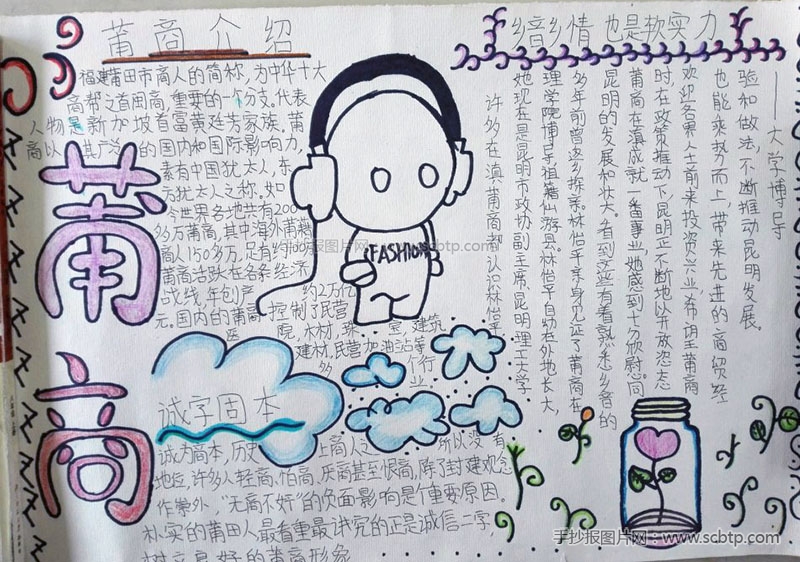 莆商介绍
福建莆田市商人的简称，为中华十大
商帮之首闽商，重要的一个分支。代表
人物是新加坡首富黄廷芳家族。莆
商以其产 的国内和国际影响力，
素有中国犹太人，东
方犹太人之称。如
今世界各地共有200
多万莆商，其中海外莆籍
商人150多万，足有约
莆商活跃在各条经济
战线，年创产 约2万亿
元。国内的莆商，控制了民营
医 院，木材，珠 宝，建筑
建材，民营加油站等
多 个行
业
莆商
FASHION
诚字固本
诚为商本，历史 上商人之 所以没有
地位，许多人轻商、怕商、厌商甚至恨商，除了封建观念
作祟外，“无商不奸”的负面影响是个重要原因。
朴实的莆田人最看重最讲究的正是诚信二字，
树立良好的莆商形象
乡音乡情 也是软实力
许多在滇莆商都认识林怡
她现在是昆明市政协副主席、昆明理工大学
理学院博导祖籍仙游县，林怡 自幼在外地长大，
多年前曾返乡探亲。林怡 亲身见证了莆商在
昆明的发展和壮大。看到这些有着熟悉乡音的
莆商在滇成就一番事业，她感到十分欣慰。同
时在政策推动下，昆明正不断地以开放姿态
欢迎各界人士前来投资兴业，希望莆商
也能乘势而上，带来先进的商贸经
验和做法，不断推动昆明发展。
——大学博导
手抄报图片网：www.scbtp.com